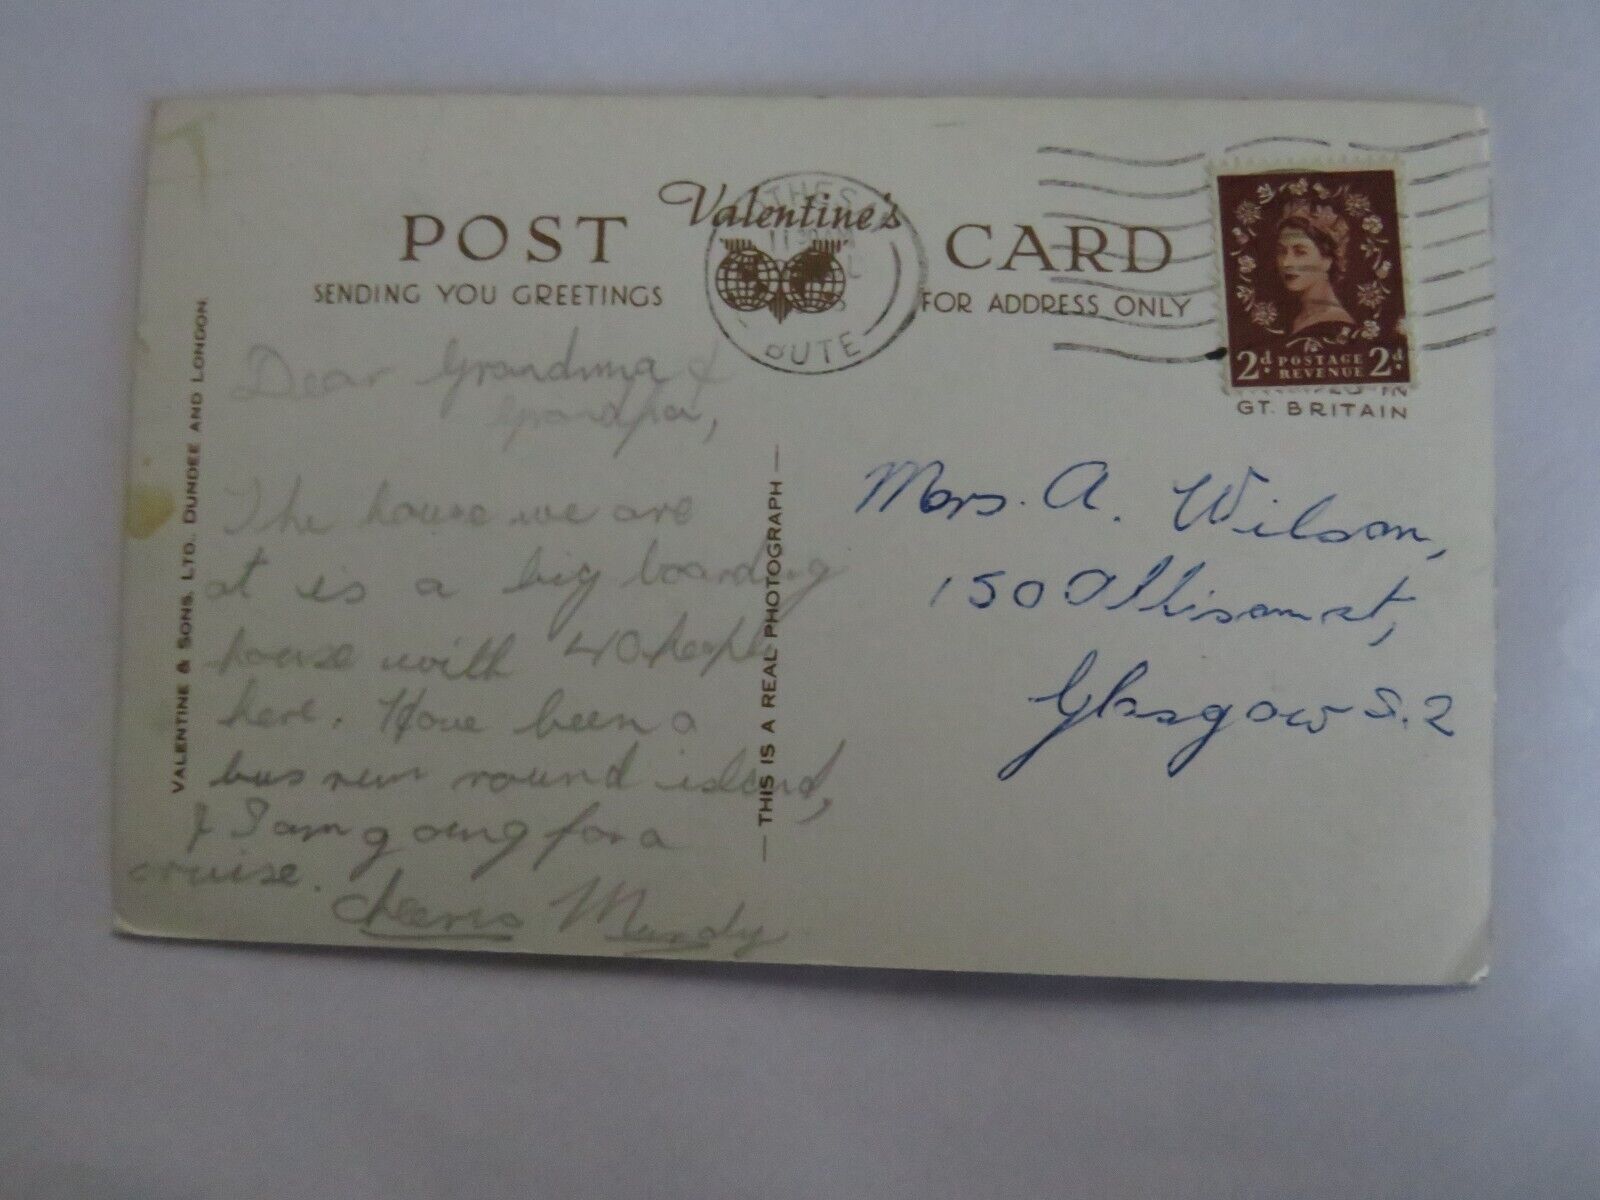 POST Valentine's CARD
SENDING YOU GREETINGS FOR ADDRESS ONLY
THES
11
BUTE
2d POSTAGE 2d
REVENUE
IN
GT. BRITAIN
VALENTINE & SONS, LTD. DUNDEE AND LONDON.
Dear Grandma &
Grandpa,
The house we are
at is a big boarding
house with 40 people
here. Have been a
bus run round island,
& I am going for a
cruise.
cheerio Mandy
— THIS IS A REAL PHOTOGRAPH —
Mrs. A. Wilson,
150 Allison st,
Glasgow S.2